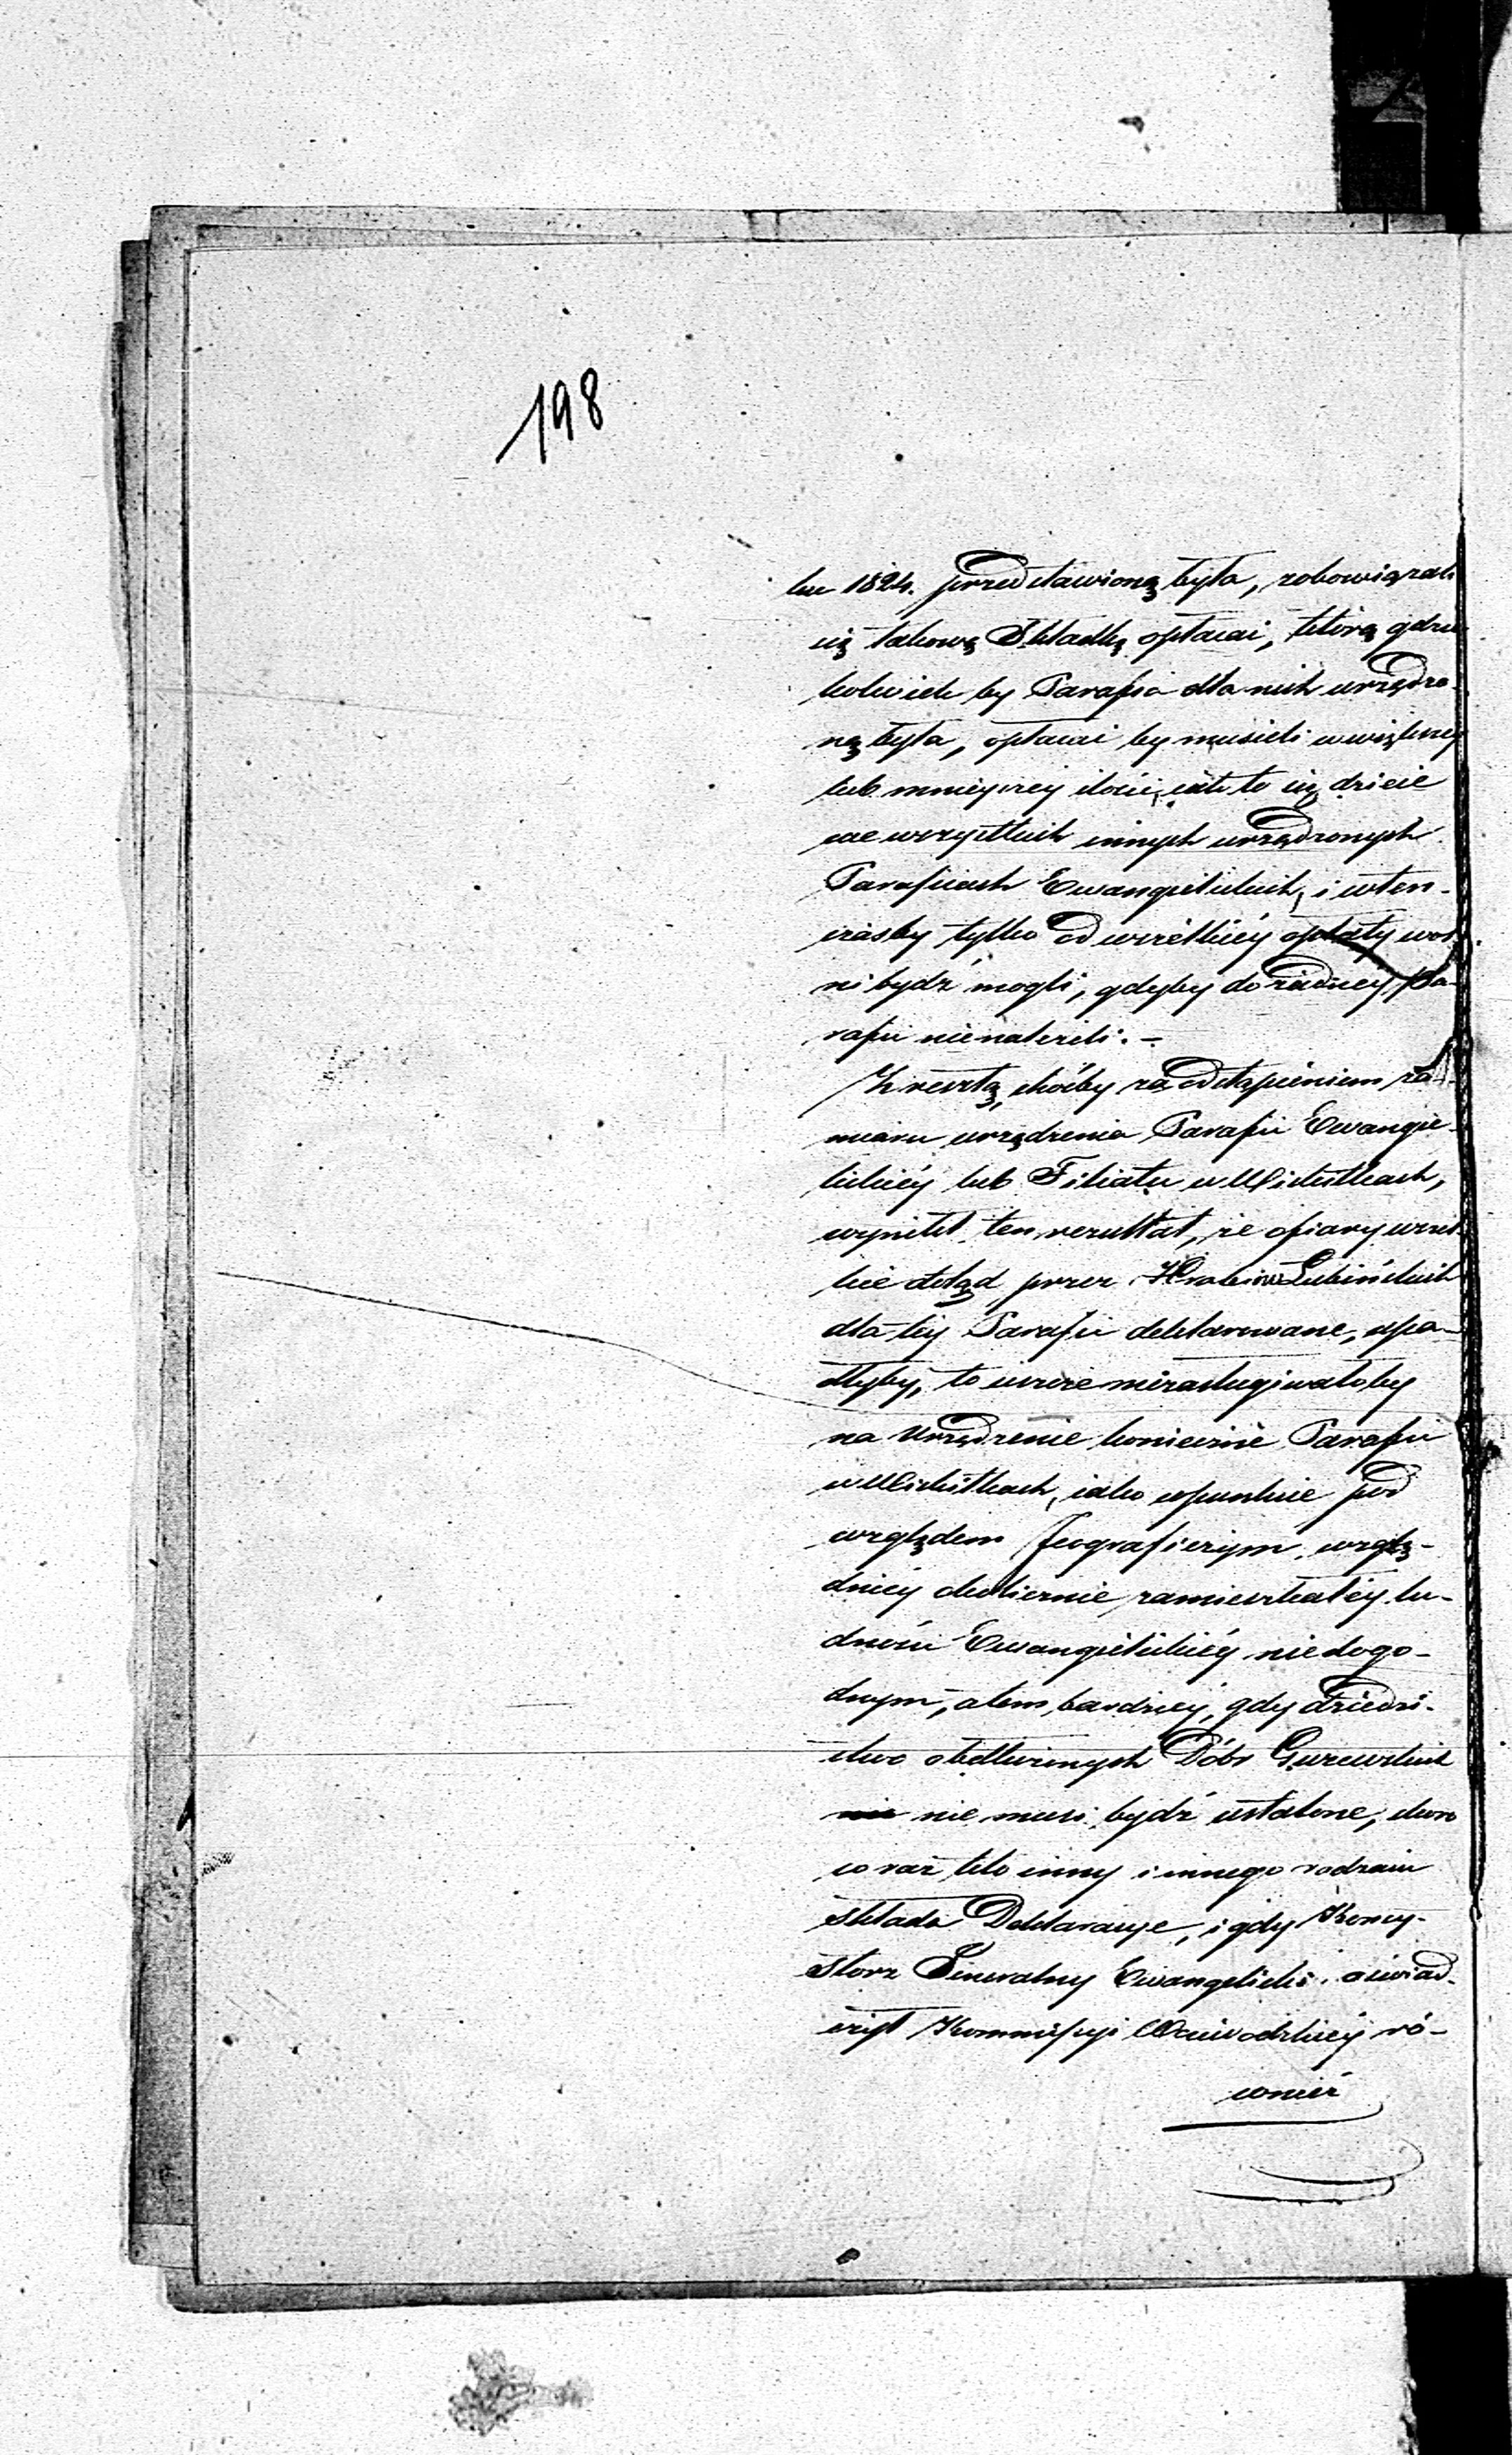 198
ku 1824. przedstawioną była, zobowiązali
się takową Składkę opłacać, którą gdzie
kolwiek by Parafia dla nich urządzo-
ną była, opłacać by musieli w większey
lub mnieyszej ilości, iak to się dzieie
we wszystkich innych urządzonych
Parafiach Ewangielickich, i wten-
czas by tylko od wszelkiéy opłaty wol-
ni bydź mogli, gdyby do żadney Pa-
rafii nienależeli. -
Z resztą, choćby za odstąpieniem za-
miaru urządzenia Parafii Ewangie-
lickiéy lub Filiału w Wiskitkach,
wynikł ten rezultat, że ofiary wszel-
kie dotąd przez Hrabiów Łubińskich
dla téy Parafii deklarowane, upa-
dłyby, to ieszcze niezasługiwałoby
na Urządzenie koniecznie Parafii
w Wiskitkach, iako w punkcie pod
względem Jeograficznym, wzglę-
dniéy okolicznie zamieszkałéy lu-
dności Ewangielickiéy niedogo-
dnym, a tem bardziéy, gdy dziedzi-
ctwo okolicznych Dóbr Guzewskich
nie musi bydź ustalone, skoro
co raz kto inny i innego rodzaiu
składa Deklaracye, i gdy Konsy-
storz Jeneralny Ewangelicki oświad-
czył Kommissyi Woiewodzkiéy ró-
wnież